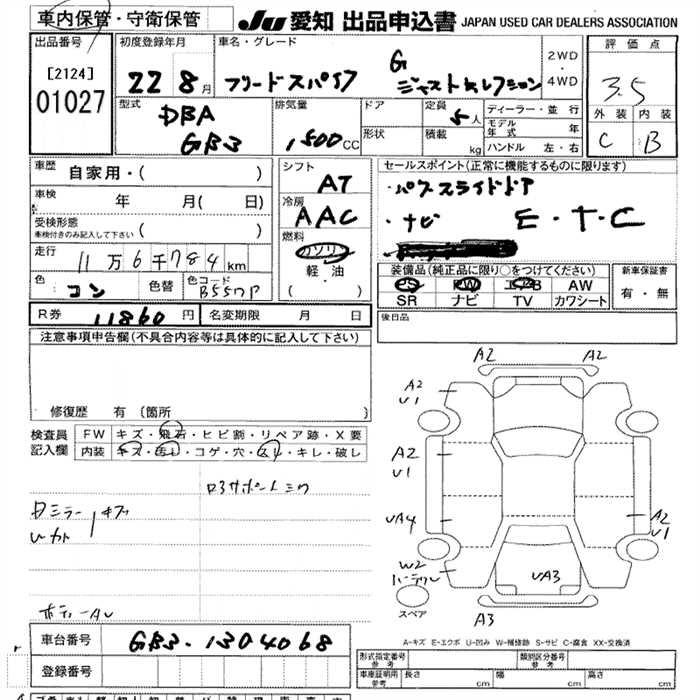 車内保管・守衛保管
JU 愛知 出品申込書 JAPAN USED CAR DEALERS ASSOCIATION
出品番号
[2124]
01027
初度登録年月
22 8月
車名・グレード
フリードスパイク G ジャストセレクション
2WD
4WD
評価点
3.5
外装 内装
C B
型式
DBA
GB3
排気量
1500 CC
ドア
形状
定員
5人
積載
kg
ディーラー・並行
モデル年式 年
ハンドル 左・右
車歴 自家用・( )
車検 年 月( 日)
受検形態
車検付きのみ記入して下さい ( )
走行
11万6千784km
色 コン 色替
色コード B557P
シフト AT
冷房 AAC
燃料
ガソリン
軽油
( ・ )
セールスポイント(正常に機能するものに限ります)
・パワースライドドア
・ナビ E・T・C
装備品(純正品に限り○をつけてください)
PS PW エアB AW
SR ナビ TV カワシート
新車保証書
有・無
R券 11860円 名変期限 月 日
後日品
注意事項申告欄(不具合内容等は具体的に記入して下さい)
修復歴 有〔箇所 〕
検査員記入欄
FW キズ・飛石・ヒビ割・リペア跡・X要
内装 キズ・汚レ・コゲ・穴・スレ・キレ・破レ
ミラー キズ
A2 A2
A2
U1
A2
U1
UA4
A2
U1
W2
UA3
スペア
A3
A-キズ E-エクボ U-凹み W-補修跡 S-サビ C-腐食 XX-交換済
車台番号 GB3-1304068
登録番号
型式指定番号 参考
類別区分番号 参考
車庫証明用 参考
長さ cm 幅 cm 高さ cm